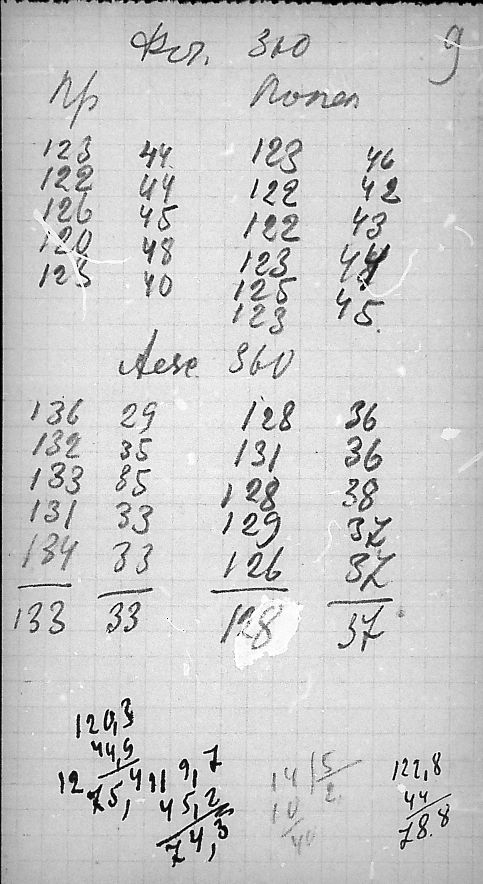 360 9
Пр
123 44 123 46
122 44 122 42
126 45 122 43
120 48 123 44
123 40 125 45
123
360
136 29 128 36
132 35 131 36
133 35 128 38
131 33 129 37
134 33 126 37
133 33 128 37
120,3
44,9
75,4
119,7
45,2
74,3
14 5
10 2
40
122,8
44
78.8